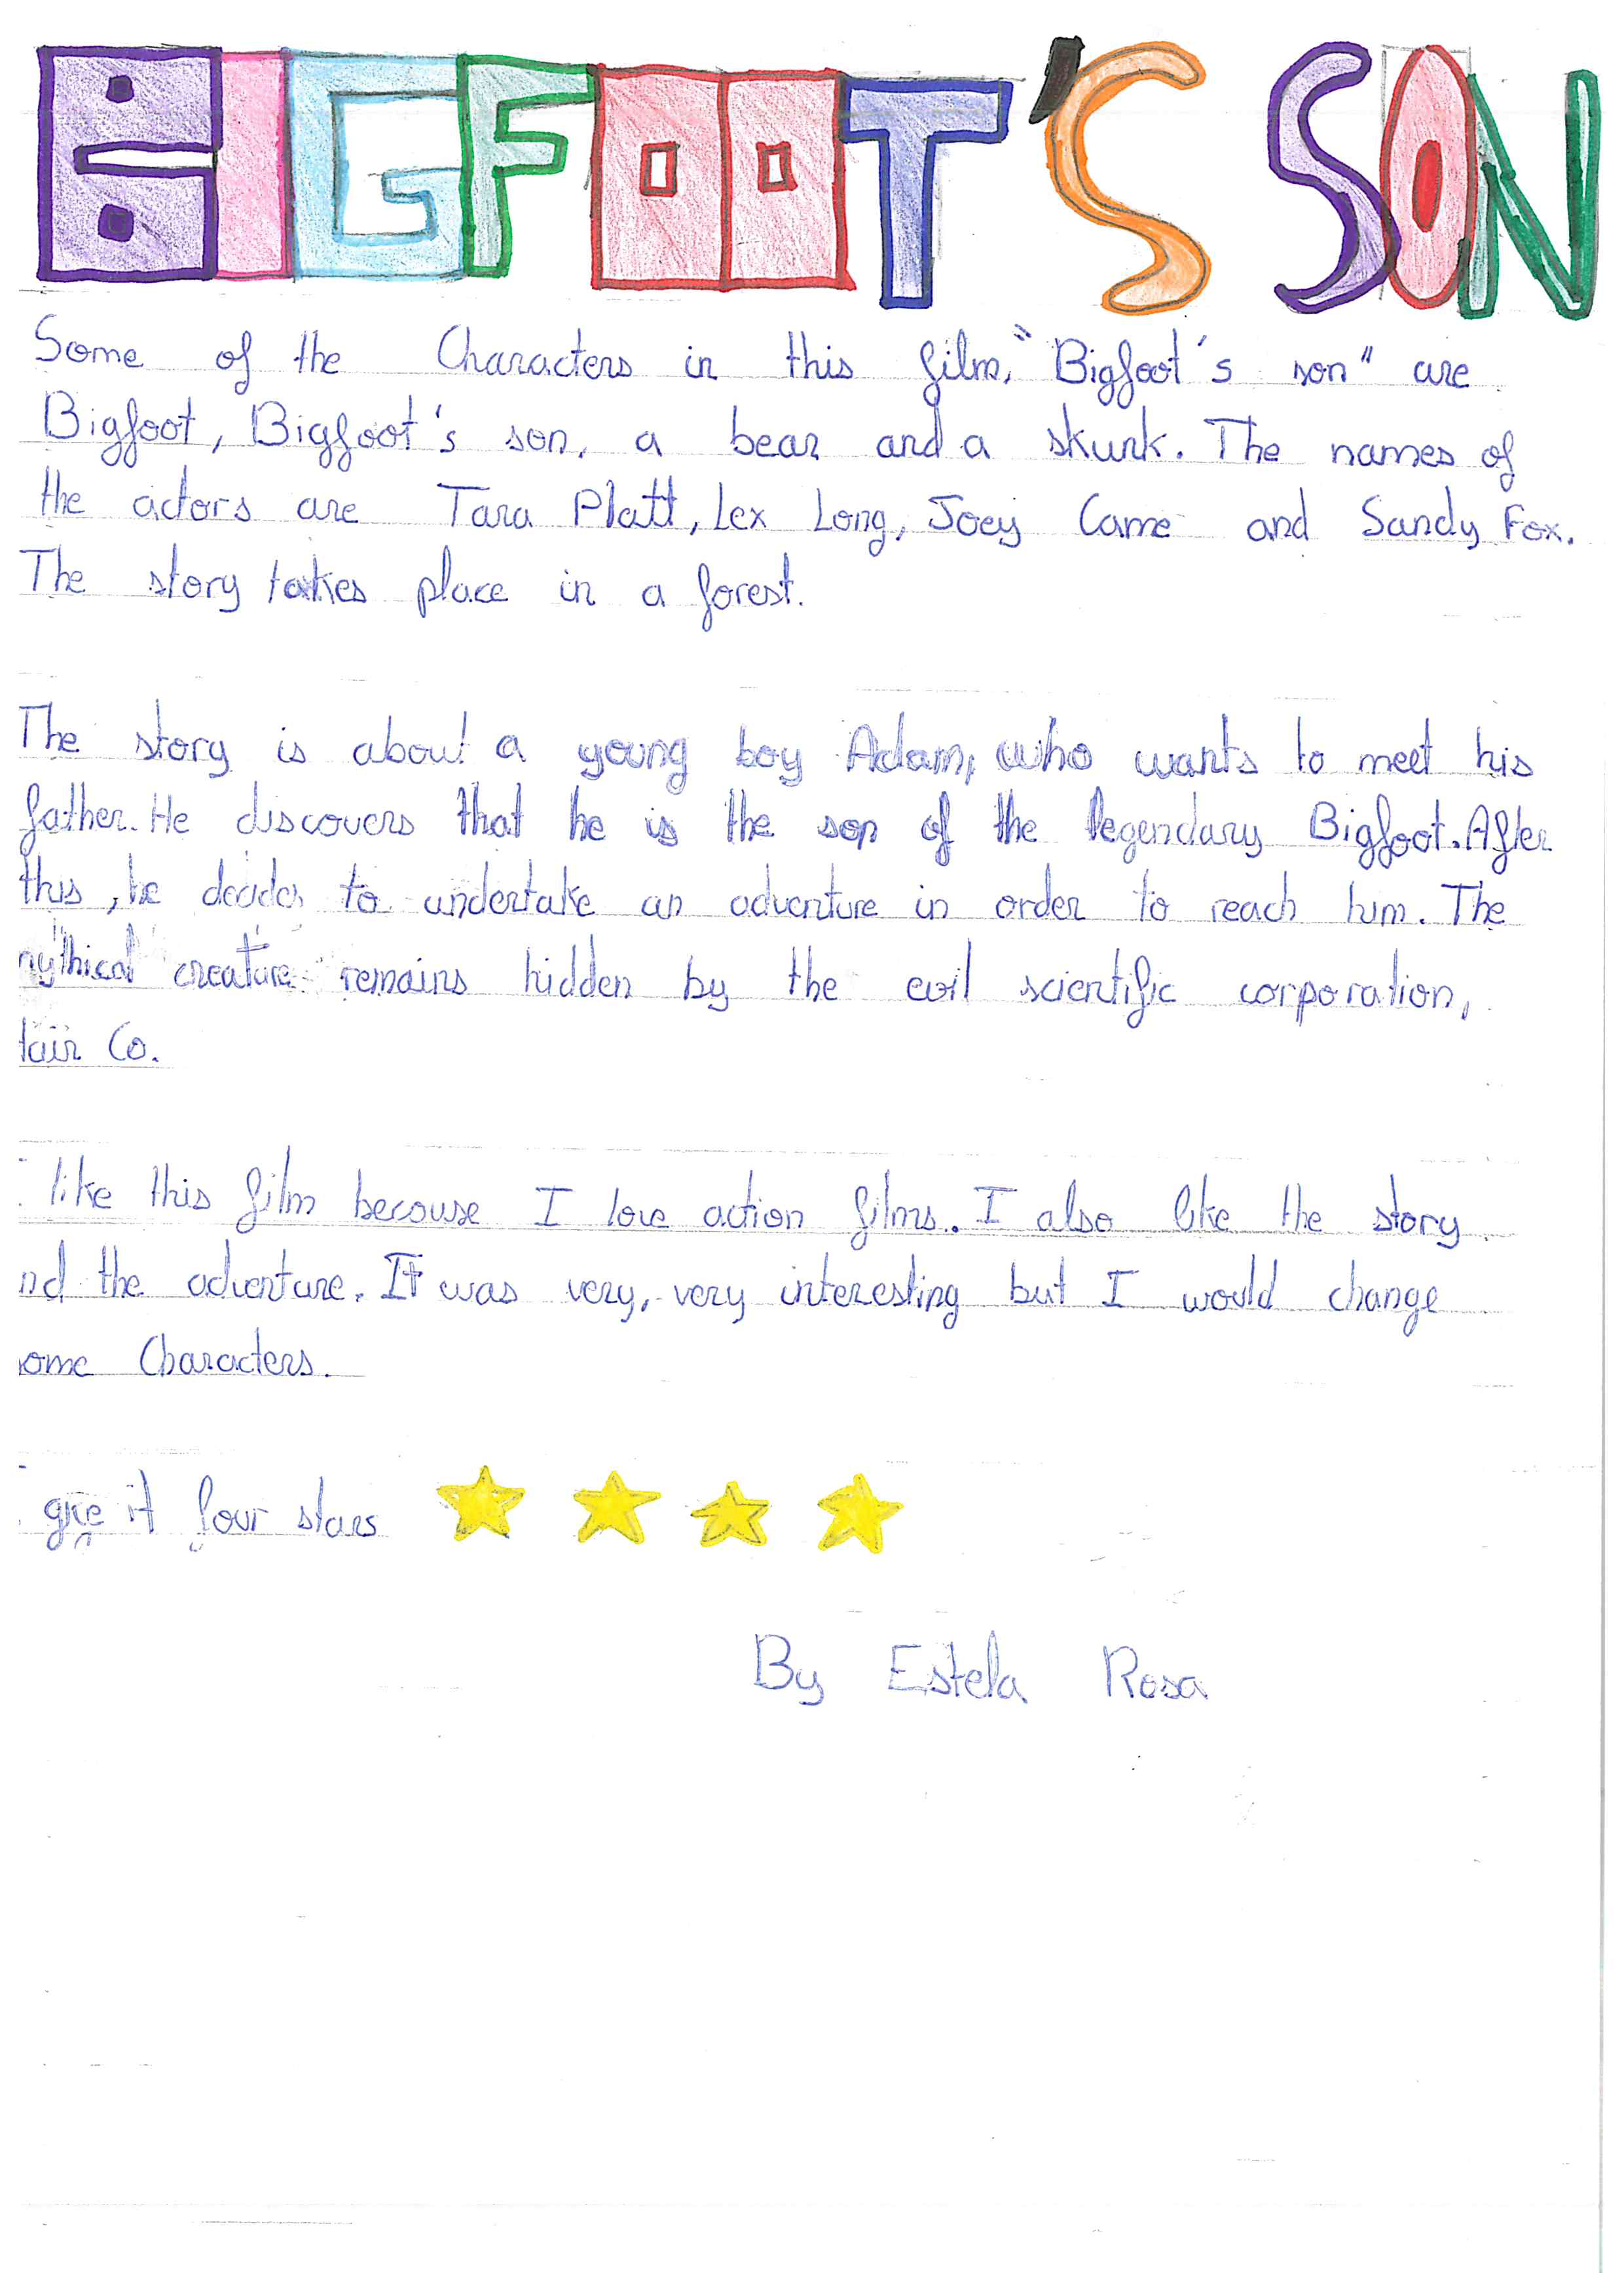 BIGFOOT'S SON
Some of the Characters in this film, "Bigfoot's son" are
Bigfoot, Bigfoot's son, a bear and a skunk. The names of
the actors are Tara Platt, Lex Long, Joey Came and Sandy Fox.
The story takes place in a forest.
The story is about a young boy Adam, who wants to meet his
father. He discovers that he is the son of the legendary Bigfoot. After
this, he decides to undertake an adventure in order to reach him. The
mythical creature remains hidden by the evil scientific corporation,
Hair Co.
like this film becouse I love action films. I also like the story
nd the adventure. It was very, very interesting but I would change
ome Characters.
give it four stars
By Estela Rosa